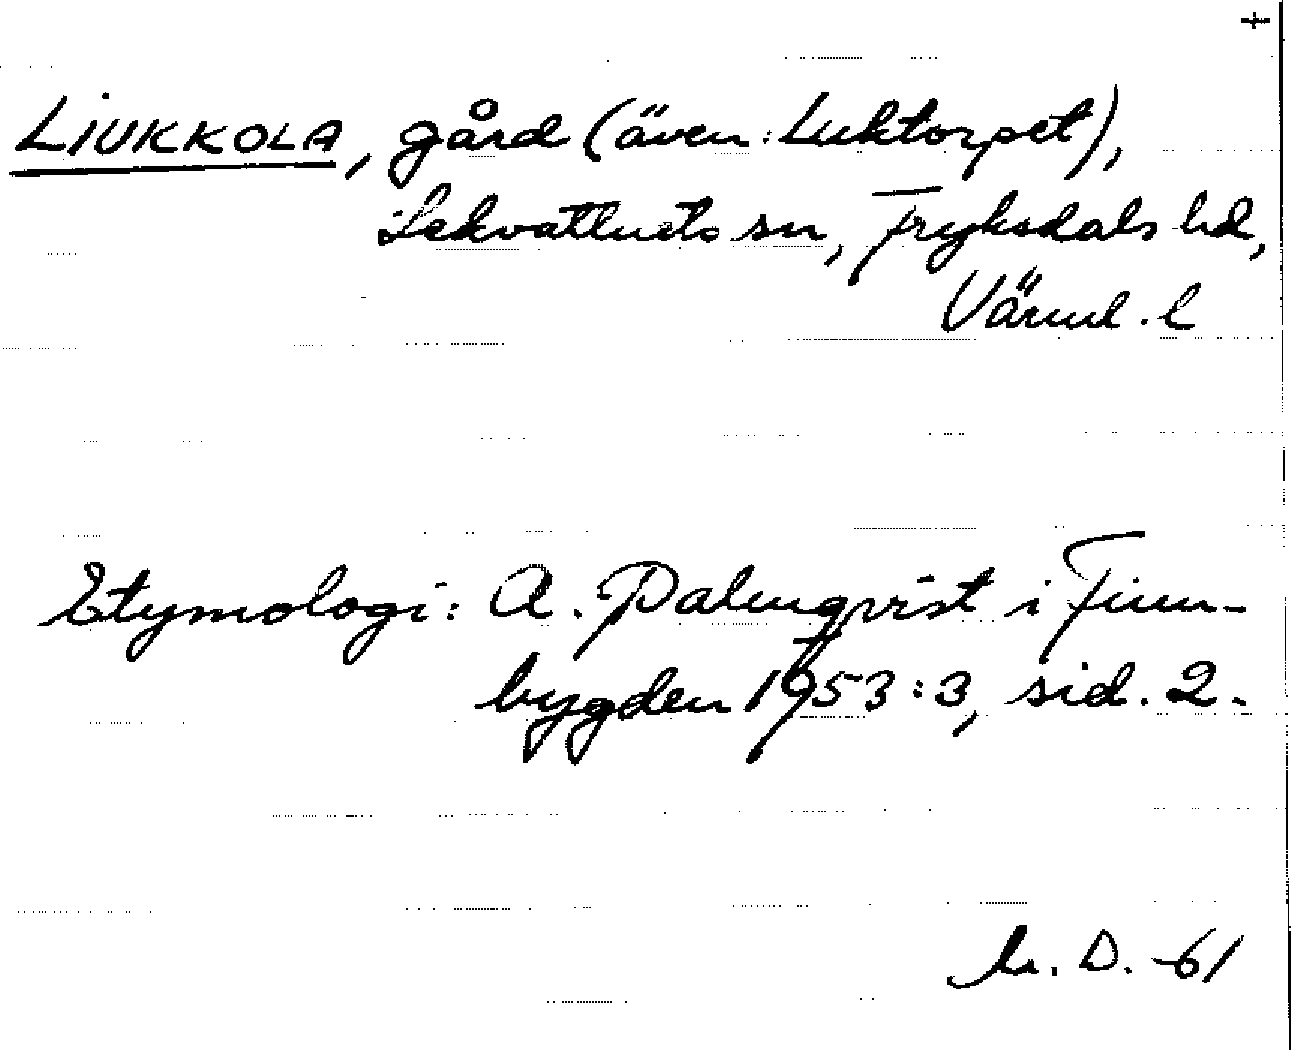 +
LIUKKOLA, gård (även: Luktorpet),
Lekvattnets sn, Fryksdals hd,
Värml. l
Etymologi: A. Palmqvist i Finn-
bygden 1953:3, sid. 2.
D. -61